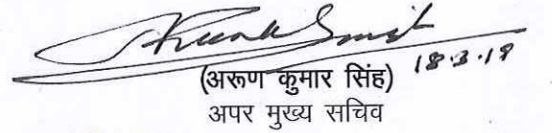 18.3.19
(अरूण कुमार सिंह)
अपर मुख्य सचिव